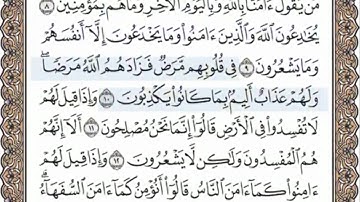 مَن يَقُولُ ءَامَنَّا بِٱللَّهِ وَبِٱلْيَوْمِ ٱلْءَاخِرِ وَمَا هُم بِمُؤْمِنِينَ ٨
يُخَٰدِعُونَ ٱللَّهَ وَٱلَّذِينَ ءَامَنُوا۟ وَمَا يَخْدَعُونَ إِلَّآ أَنفُسَهُمْ
وَمَا يَشْعُرُونَ ٩ فِى قُلُوبِهِم مَّرَضٌ فَزَادَهُمُ ٱللَّهُ مَرَضًا ۖ
وَلَهُمْ عَذَابٌ أَلِيمٌۢ بِمَا كَانُوا۟ يَكْذِبُونَ ١٠ وَإِذَا قِيلَ لَهُمْ
لَا تُفْسِدُوا۟ فِى ٱلْأَرْضِ قَالُوٓا۟ إِنَّمَا نَحْنُ مُصْلِحُونَ ١١ أَلَآ إِنَّهُمْ
هُمُ ٱلْمُفْسِدُونَ وَلَٰكِن لَّا يَشْعُرُونَ ١٢ وَإِذَا قِيلَ لَهُمْ
ءَامِنُوا۟ كَمَآ ءَامَنَ ٱلنَّاسُ قَالُوٓا۟ أَنُؤْمِنُ كَمَآ ءَامَنَ ٱلسُّفَهَآءُ ۗ